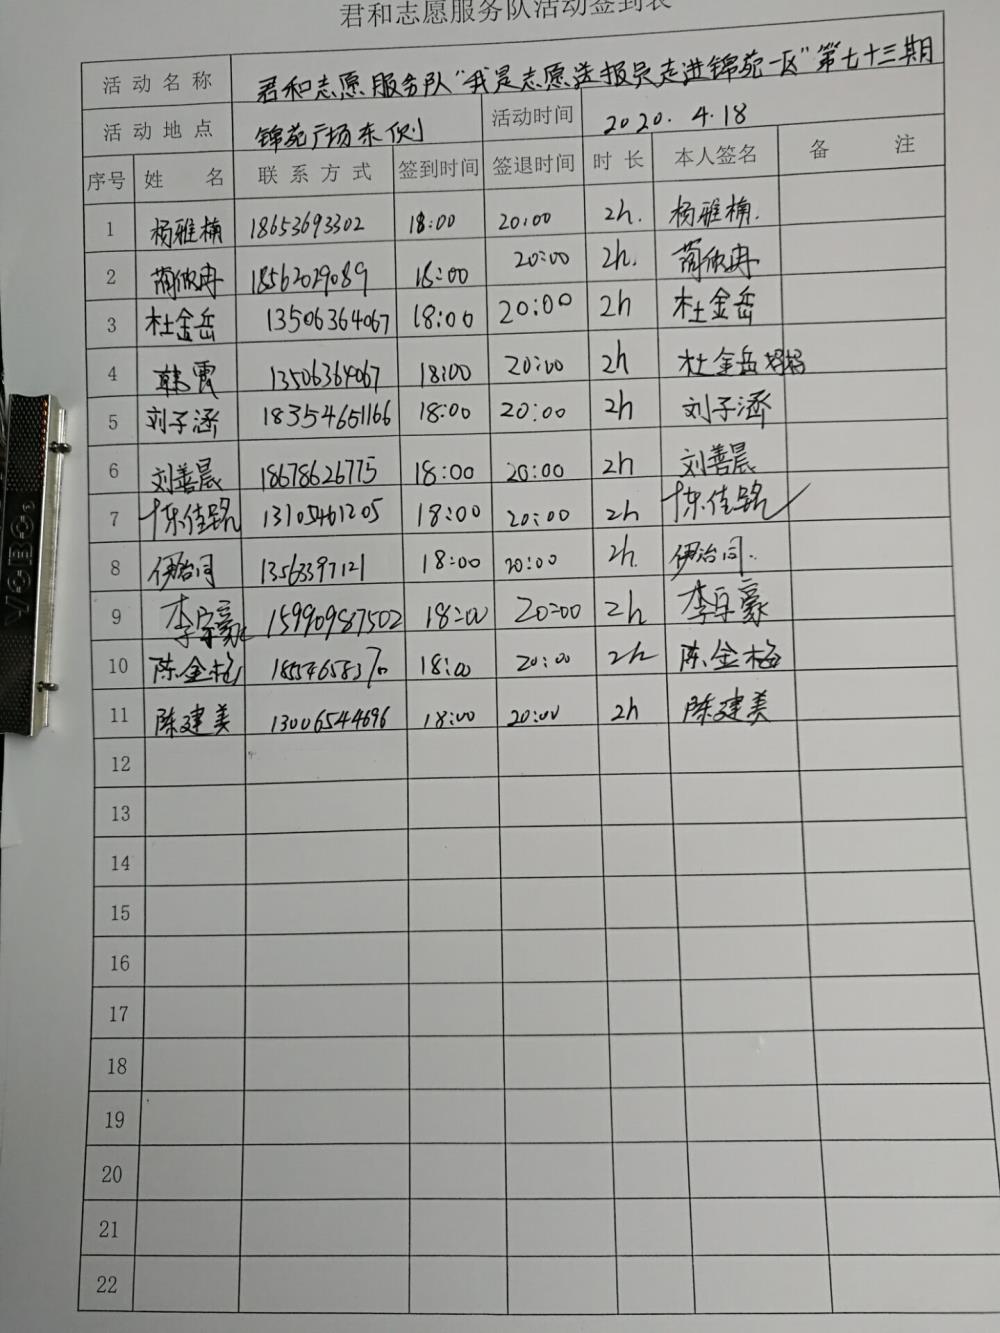 君和志愿服务队活动签到表
活动名称 君和志愿服务队“我是志愿送报员走进锦苑一区”第七十三期
活动地点 锦苑广场东侧 活动时间 2020.4.18
序号 姓名 联系方式 签到时间 签退时间 时长 本人签名 备注
1 杨雅楠 18653693302 18:00 20:00 2h. 杨雅楠.
2 蔺欣冉 18562029089 18:00 20:00 2h. 蔺欣冉
3 杜金岳 13506364067 18:00 20:00 2h 杜金岳
4 韩霞 13506364067 18:00 20:00 2h 杜金岳妈妈
5 刘子涵 18354651166 18:00 20:00 2h 刘子涵
6 刘善晨 18678626775 18:00 20:00 2h 刘善晨
7 陈佳铭 13105461205 18:00 20:00 2h 陈佳铭
8 伊治同 13563397121 18:00 20:00 2h. 伊治同.
9 李宗豪 15990987502 18:00 20:00 2h 李宗豪
10 陈金梅 18554658370 18:00 20:00 2h 陈金梅
11 陈建美 13006544696 18:00 20:00 2h 陈建美
12
13
14
15
16
17
18
19
20
21
22